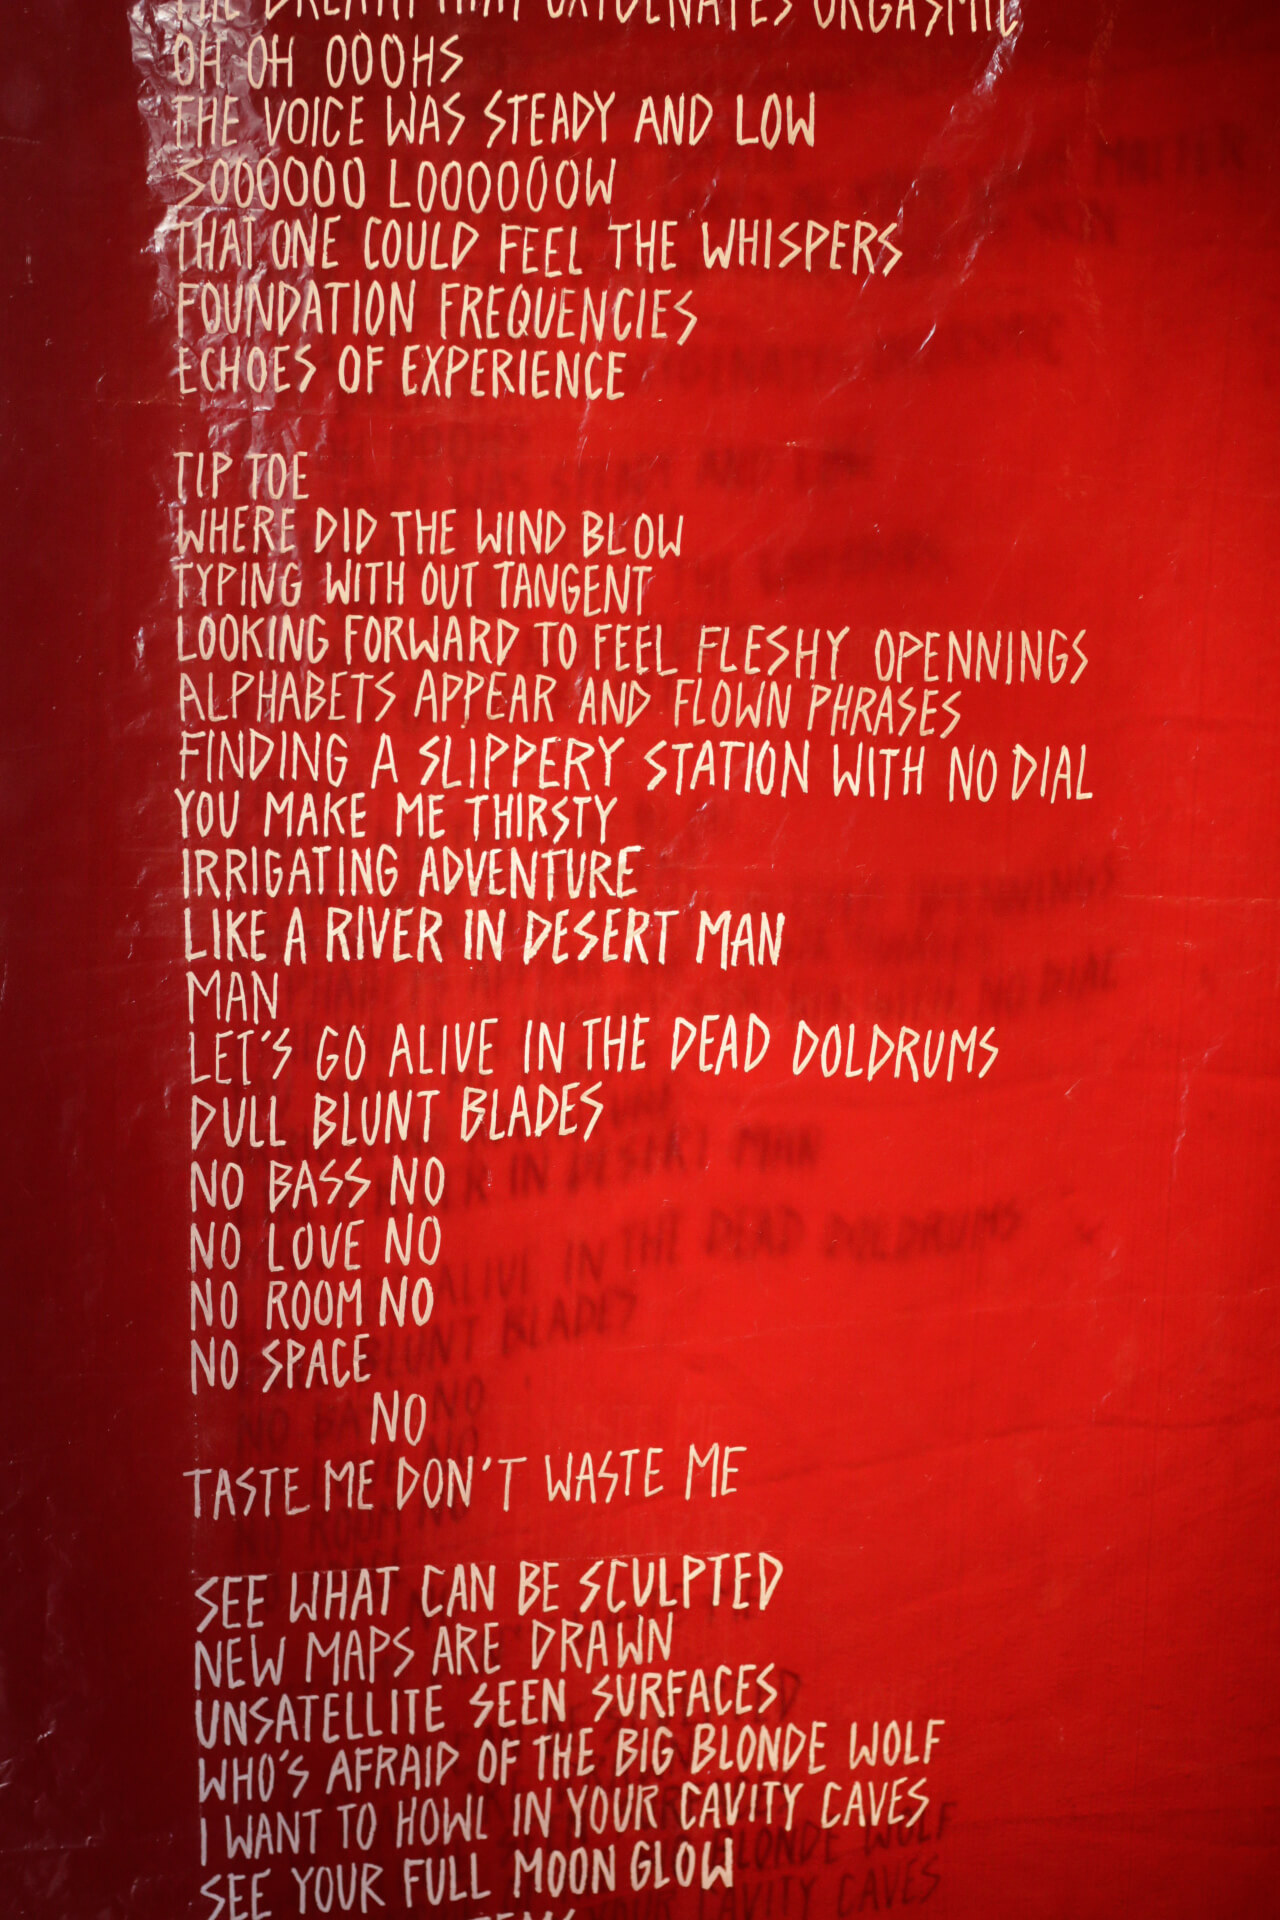 THE BREATH THAT OXYGENATES ORGASMIC
OH OH OOOHS
THE VOICE WAS STEADY AND LOW
SOOOOOO LOOOOOOW
THAT ONE COULD FEEL THE WHISPERS
FOUNDATION FREQUENCIES
ECHOES OF EXPERIENCE
TIP TOE
WHERE DID THE WIND BLOW
TYPING WITH OUT TANGENT
LOOKING FORWARD TO FEEL FLESHY OPENNINGS
ALPHABETS APPEAR AND FLOWN PHRASES
FINDING A SLIPPERY STATION WITH NO DIAL
YOU MAKE ME THIRSTY
IRRIGATING ADVENTURE
LIKE A RIVER IN DESERT MAN
MAN
LET'S GO ALIVE IN THE DEAD DOLDRUMS
DULL BLUNT BLADES
NO BASS NO
NO LOVE NO
NO ROOM NO
NO SPACE
NO
TASTE ME DON'T WASTE ME
SEE WHAT CAN BE SCULPTED
NEW MAPS ARE DRAWN
UNSATELLITE SEEN SURFACES
WHO'S AFRAID OF THE BIG BLONDE WOLF
I WANT TO HOWL IN YOUR CAVITY CAVES
SEE YOUR FULL MOON GLOW